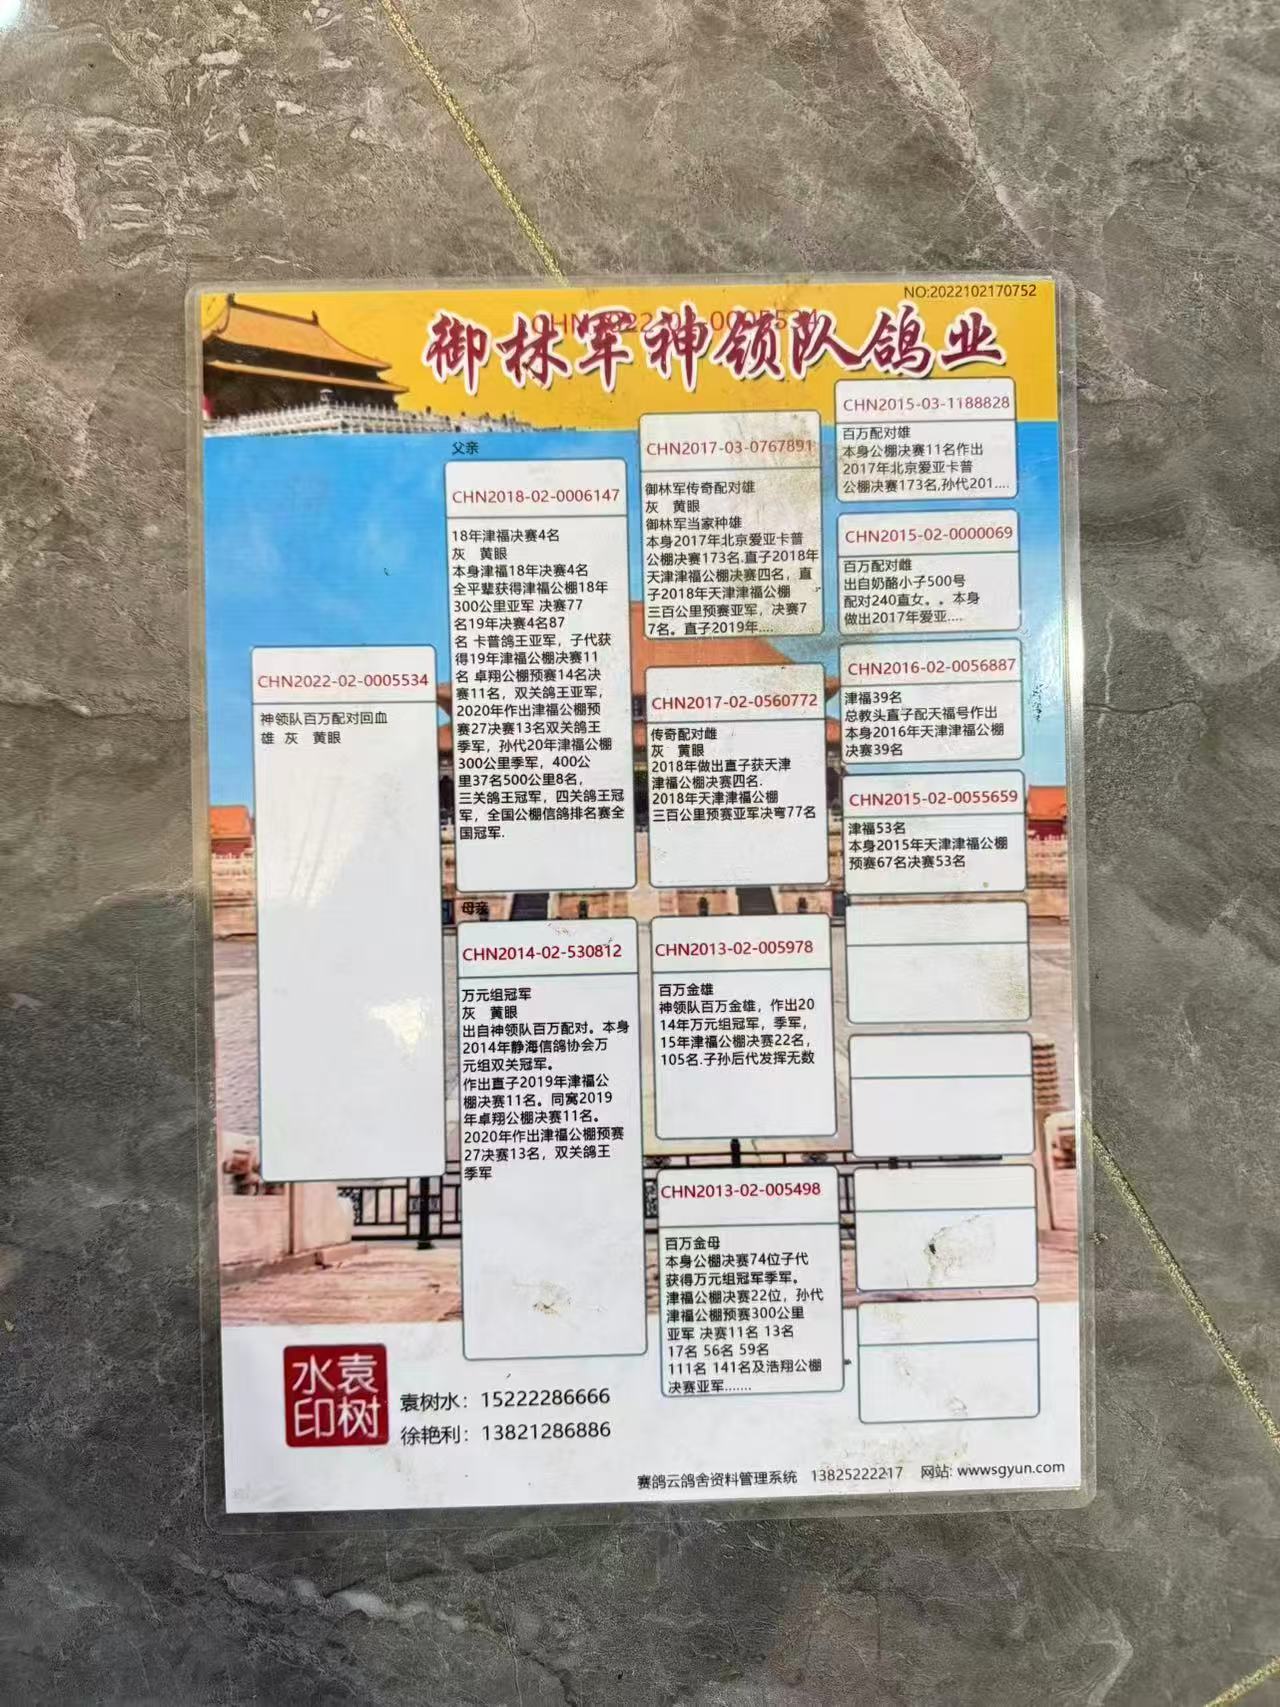 NO:2022102170752
CHN2022-02-0005534
御林军神领队鸽业
CHN2022-02-0005534
神领队百万配对回血
雄 灰 黄眼
父亲
CHN2018-02-0006147
18年津福决赛4名
灰 黄眼
本身津福18年决赛4名
全平辈获得津福公棚18年
300公里亚军 决赛77
名19年决赛4名87
名 卡普鸽王亚军，子代获
得19年津福公棚决赛11
名 卓翔公棚预赛14名决
赛11名，双关鸽王亚军，
2020年作出津福公棚预
赛27决赛13名双关鸽王
季军，孙代20年津福公棚
300公里季军，400公
里37名500公里8名，
三关鸽王冠军，四关鸽王冠
军，全国公棚信鸽排名赛全
国冠军.
母亲
CHN2014-02-530812
万元组冠军
灰 黄眼
出自神领队百万配对。本身
2014年静海信鸽协会万
元组双关冠军。
作出直子2019年津福公
棚决赛11名。同窝2019
年卓翔公棚决赛11名。
2020年作出津福公棚预赛
27决赛13名，双关鸽王
季军
CHN2017-03-0767891
御林军传奇配对雄
灰 黄眼
御林军当家种雄
本身2017年北京爱亚卡普
公棚决赛173名.直子2018年
天津津福公棚决赛四名，直
子2018年天津津福公棚
三百公里预赛亚军，决赛7
7名。直子2019年....
CHN2017-02-0560772
传奇配对雌
灰 黄眼
2018年做出直子获天津
津福公棚决赛四名.
2018年天津津福公棚
三百公里预赛亚军决弯77名
CHN2013-02-005978
百万金雄
神领队百万金雄，作出20
14年万元组冠军，季军，
15年津福公棚决赛22名，
105名.子孙后代发挥无数
CHN2013-02-005498
百万金母
本身公棚决赛74位子代
获得万元组冠军季军。
津福公棚决赛22位，孙代
津福公棚预赛300公里
亚军 决赛11名 13名
17名 56名 59名
111名 141名及浩翔公棚
决赛亚军.......
CHN2015-03-1188828
百万配对雄
本身公棚决赛11名作出
2017年北京爱亚卡普
公棚决赛173名,孙代201....
CHN2015-02-0000069
百万配对雌
出自奶酪小子500号
配对240直女。。本身
做出2017年爱亚....
CHN2016-02-0056887
津福39名
总教头直子配天福号作出
本身2016年天津津福公棚
决赛39名
CHN2015-02-0055659
津福53名
本身2015年天津津福公棚
预赛67名决赛53名
水袁
印树
袁树水：15222286666
徐艳利：13821286886
赛鸽云鸽舍资料管理系统 13825222217 网站: wwwsgyun.com